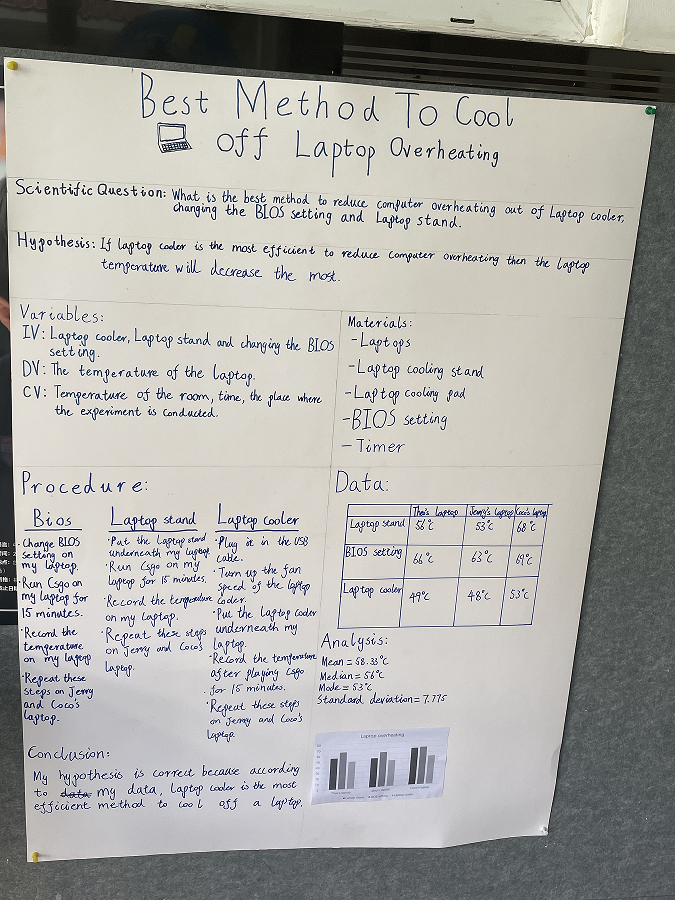 Best Method To Cool
off Laptop Overheating
Scientific Question: What is the best method to reduce computer overheating out of Laptop cooler,
changing the BIOS setting and Laptop stand.
Hypothesis: If laptop cooler is the most efficient to reduce computer overheating then the laptop
temperature will decrease the most.
Variables:
IV: Laptop cooler, Laptop stand and changing the BIOS
setting.
DV: The temperature of the laptop.
CV: Temperature of the room, time, the place where
the experiment is conducted.
Materials:
- Laptops
- Laptop cooling stand
- Laptop cooling pad
- BIOS setting
- Timer
Procedure:
Bios
· Change BIOS
setting on
my laptop.
· Run Csgo on
my laptop for
15 minutes.
· Record the
temperature
on my laptop
· Repeat these
steps on Jenny
and Coco's
laptop.
Laptop stand
· Put the Laptop stand
underneath my laptop
· Run Csgo on my
laptop for 15 minutes.
· Record the temperature
on my laptop.
· Repeat these steps
on Jenny and Coco's
laptop.
Laptop cooler
· Plug it in the USB
cable.
· Turn up the fan
speed of the laptop
cooler.
· Put the laptop cooler
underneath my
laptop.
· Record the temperature
after playing Csgo
for 15 minutes.
· Repeat these steps
on Jenny and Coco's
laptop.
Data:
Laptop Jenny's laptop Coco's laptop
Laptop stand 56°c 53°c 68°c
BIOS setting 66°c 63°c 69°c
Laptop cooler 49°c 48°c 53°c
Analysis:
Mean = 58.33°c
Median = 56°c
Mode = 53°c
Standard deviation = 7.775
Laptop overheating
Conclusion:
My hypothesis is correct because according
to data my data, Laptop cooler is the most
efficient method to cool off a laptop.